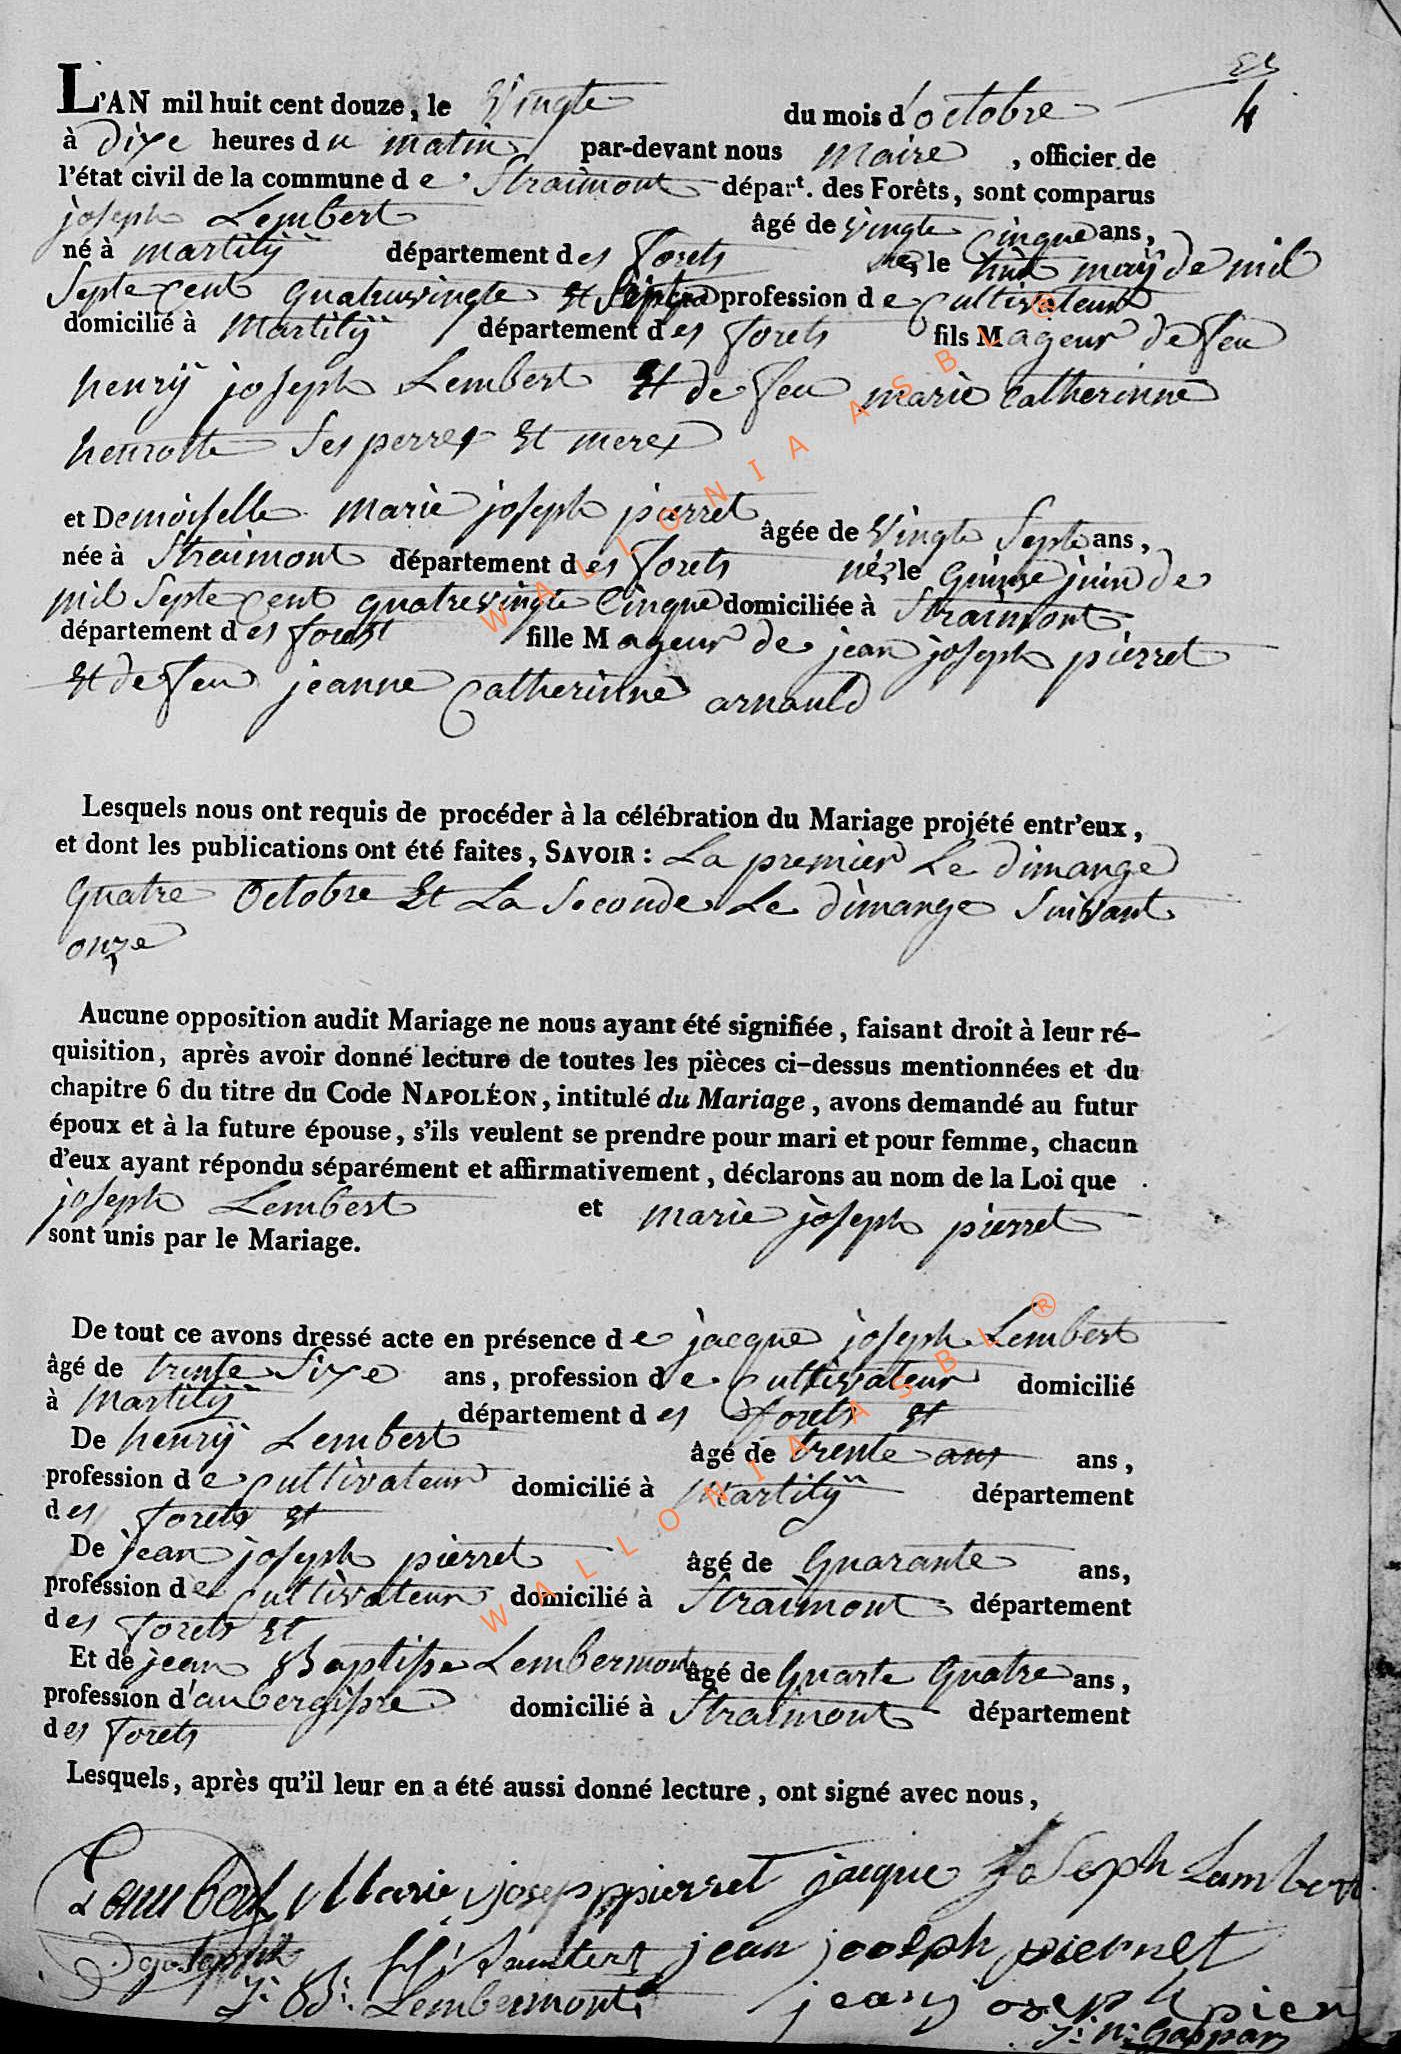 4
L'AN mil huit cent douze, le Vingte du mois d'octobre
à dixe heures du matin par-devant nous maire, officier de
l'état civil de la commune de Straimont départ. des Forêts, sont comparus
joseph Lembert âgé de vingte Cinque ans,
né à martilÿ département des forets né, le huit maÿ de mil
Septe Cent quatrevingte et Septe profession de Cultivateur
domicilié à MartilÿÌ département des forets fils Mageur de feu
henrÿ joseph Lembert Et de feu marie Catherinne
henrotte Ses perres Et meres
et Demoiselle marie joseph pierret âgée de Vingte Septe ans,
née à Straimont département des forets néz le Quinse juin de
mil Septe Cent quatrevingte Cinque domiciliée à Straimont
département des forest fille Mageur de jean joseph pierret
Et de feu jeanne Catherinne arnould
Lesquels nous ont requis de procéder à la célébration du Mariage projété entr'eux,
et dont les publications ont été faites, SAVOIR : La premier Le dimange
Quatre Octobre Et La Seconde Le dimange Suivant
onze
Aucune opposition audit Mariage ne nous ayant été signifiée, faisant droit à leur ré-
quisition, après avoir donné lecture de toutes les pièces ci-dessus mentionnées et du
chapitre 6 du titre du Code NAPOLÉON, intitulé du Mariage, avons demandé au futur
époux et à la future épouse, s'ils veulent se prendre pour mari et pour femme, chacun
d'eux ayant répondu séparément et affirmativement, déclarons au nom de la Loi que
joseph Lembert et marie joseph pierret
sont unis par le Mariage.
De tout ce avons dressé acte en présence de jacque joseph Lembert
âgé de trente Sixe ans, profession de Cultivateur domicilié
à Martilÿ département des forets Et
De henrÿ Lembert âgé de trente ans ans,
profession de Cultivateur domicilié à Martilÿ département
des forets Et
De jean joseph pierret âgé de Quarante ans,
profession de Cultivateur domicilié à Straimont département
des forets Et
Et de jean Baptiste Lembermont âgé de Quarte Quatre ans,
profession d'aubergiste domicilié à Straimont département
des forets
Lesquels, après qu'il leur en a été aussi donné lecture, ont signé avec nous,
Lambert Marie josepp pierret jacque Joseph Lambert
Lambert jean joolph pierret
J: B: Lembermont jean joseph pier
J: N: Gaspar
WALLONIA ASBL ®
WALLONIA ASBL ®